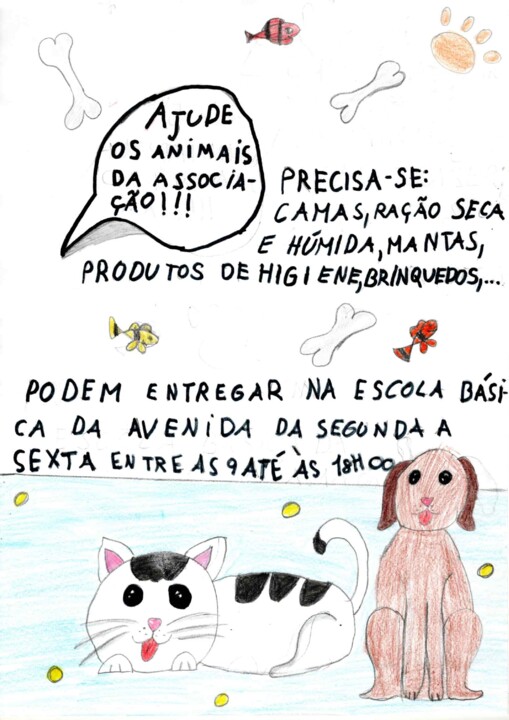 AJUDE
OS ANIMAIS
DA ASSOCIA-
ÇÃO!!!
PRECISA-SE:
CAMAS, RAÇÃO SECA
E HÚMIDA, MANTAS,
PRODUTOS DE HIGIENE, BRINQUEDOS,...
PODEM ENTREGAR NA ESCOLA BÁSI-
CA DA AVENIDA DA SEGUNDA A
SEXTA ENTRE AS 9 ATÉ ÀS 18H00